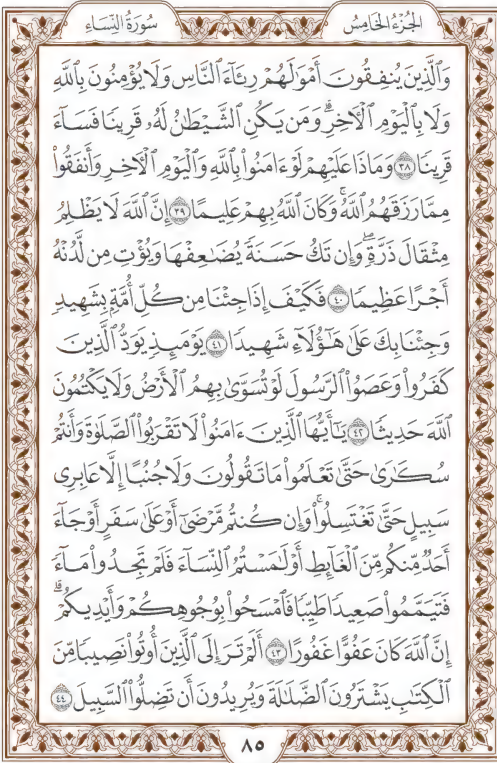 الجُزْءُ الخَامِسُ
سُورَةُ النِّسَاءِ
وَالَّذِينَ يُنفِقُونَ أَمْوَٰلَهُمْ رِئَآءَ النَّاسِ وَلَا يُؤْمِنُونَ بِاللَّهِ
وَلَا بِالْيَوْمِ الْأَخِرِۗ وَمَن يَكُنِ الشَّيْطَٰنُ لَهُۥ قَرِينًا فَسَآءَ
قَرِينًا ٣٨ وَمَاذَا عَلَيْهِمْ لَوْءَامَنُوا۟ بِاللَّهِ وَالْيَوْمِ الْأَخِرِ وَأَنفَقُوا۟
مِمَّا رَزَقَهُمُ اللَّهُۚ وَكَانَ اللَّهُ بِهِمْ عَلِيمًا ٣٩ إِنَّ اللَّهَ لَا يَظْلِمُ
مِثْقَالَ ذَرَّةٍۖ وَإِن تَكُ حَسَنَةً يُضَٰعِفْهَا وَيُؤْتِ مِن لَّدُنْهُ
أَجْرًا عَظِيمًا ٤٠ فَكَيْفَ إِذَا جِئْنَا مِن كُلِّ أُمَّةٍۭ بِشَهِيدٍ
وَجِئْنَا بِكَ عَلَىٰ هَٰٓؤُلَآءِ شَهِيدًا ٤١ يَوْمَئِذٍ يَوَدُّ الَّذِينَ
كَفَرُوا۟ وَعَصَوُا۟ الرَّسُولَ لَوْ تُسَوَّىٰ بِهِمُ الْأَرْضُ وَلَا يَكْتُمُونَ
اللَّهَ حَدِيثًا ٤٢ يَٰٓأَيُّهَا الَّذِينَ ءَامَنُوا۟ لَا تَقْرَبُوا۟ الصَّلَوٰةَ وَأَنتُمْ
سُكَٰرَىٰ حَتَّىٰ تَعْلَمُوا۟ مَا تَقُولُونَ وَلَا جُنُبًا إِلَّا عَابِرِى
سَبِيلٍ حَتَّىٰ تَغْتَسِلُوا۟ۚ وَإِن كُنتُم مَّرْضَىٰٓ أَوْ عَلَىٰ سَفَرٍ أَوْ جَآءَ
أَحَدٌ مِّنكُم مِّنَ الْغَآئِطِ أَوْ لَٰمَسْتُمُ النِّسَآءَ فَلَمْ تَجِدُوا۟ مَآءً
فَتَيَمَّمُوا۟ صَعِيدًا طَيِّبًا فَامْسَحُوا۟ بِوُجُوهِكُمْ وَأَيْدِيكُمْۗ
إِنَّ اللَّهَ كَانَ عَفُوًّا غَفُورًا ٤٣ أَلَمْ تَرَ إِلَى الَّذِينَ أُوتُوا۟ نَصِيبًا مِّنَ
الْكِتَٰبِ يَشْتَرُونَ الضَّلَٰلَةَ وَيُرِيدُونَ أَن تَضِلُّوا۟ السَّبِيلَ ٤٤
٨٥